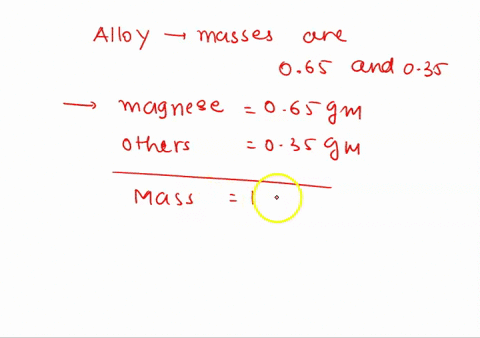 Alloy → masses are
0.65 and 0.35
→ magnese = 0.65 gm
others = 0.35 gm
Mass = 1